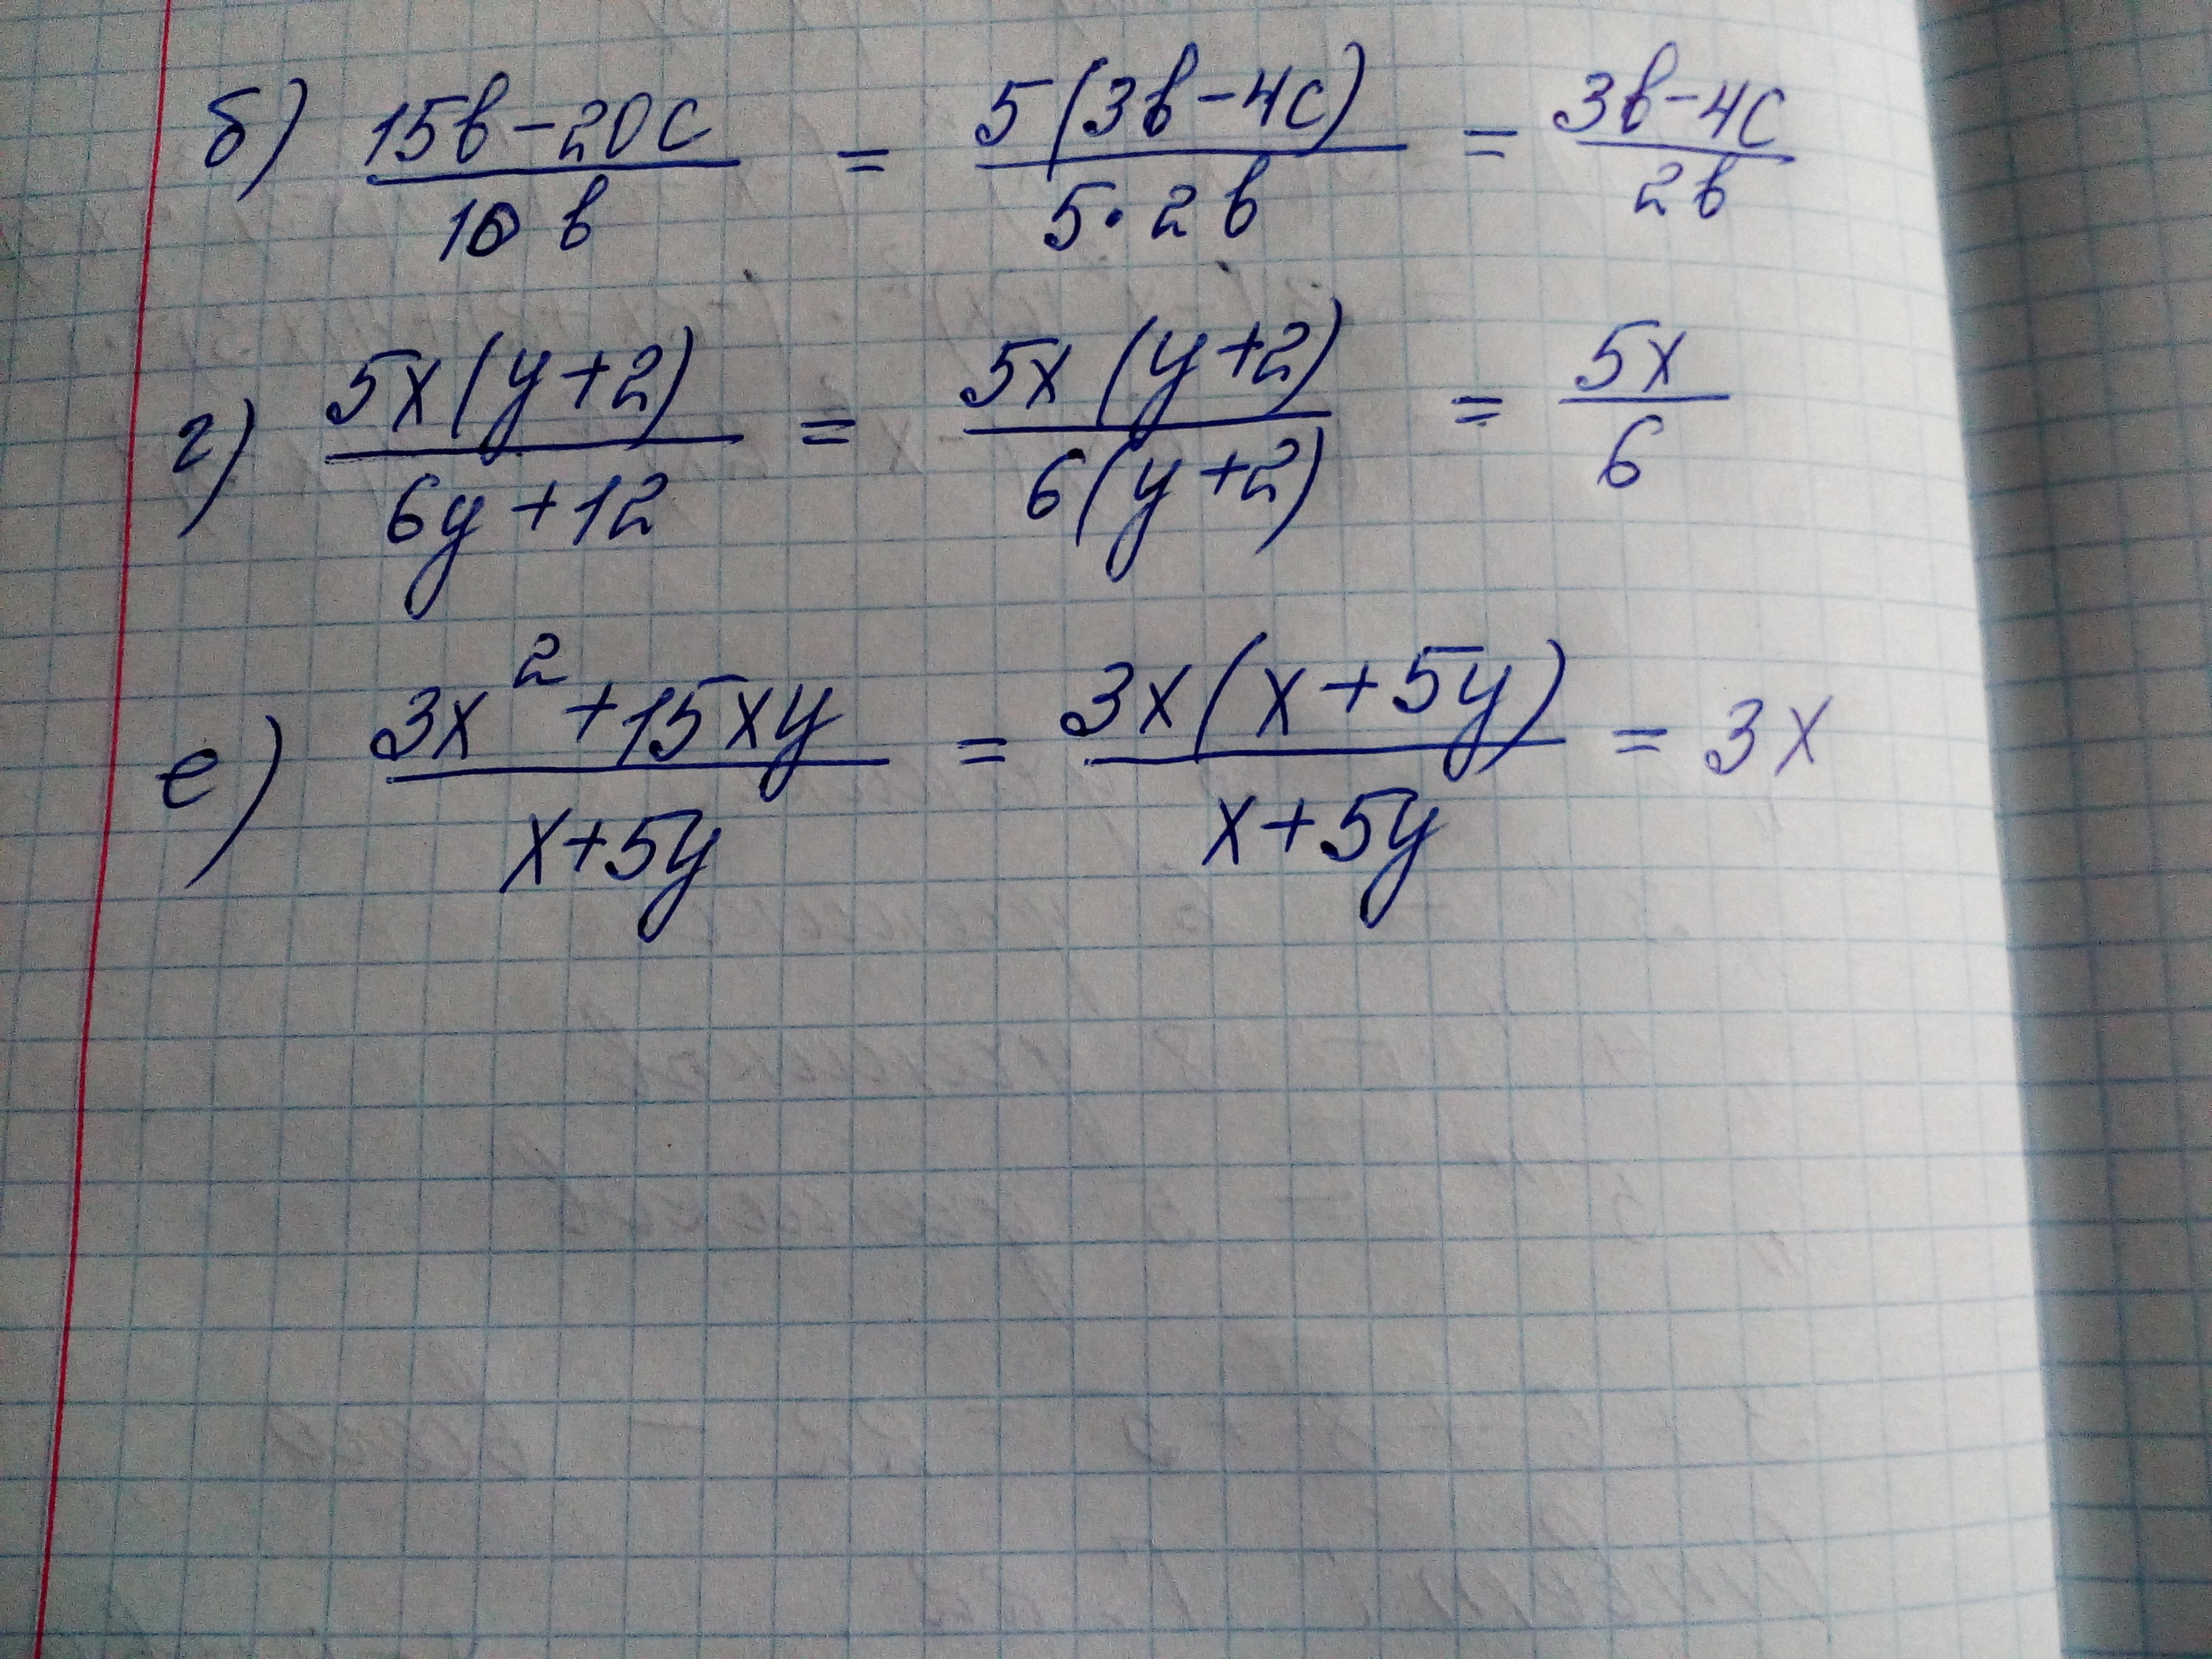 б) (15b-20c)/(10b) = (5(3b-4c))/(5·2b) = (3b-4c)/(2b)
г) (5x(y+2))/(6y+12) = (5x(y+2))/(6(y+2)) = (5x)/(6)
е) (3x²+15xy)/(x+5y) = (3x(x+5y))/(x+5y) = 3x